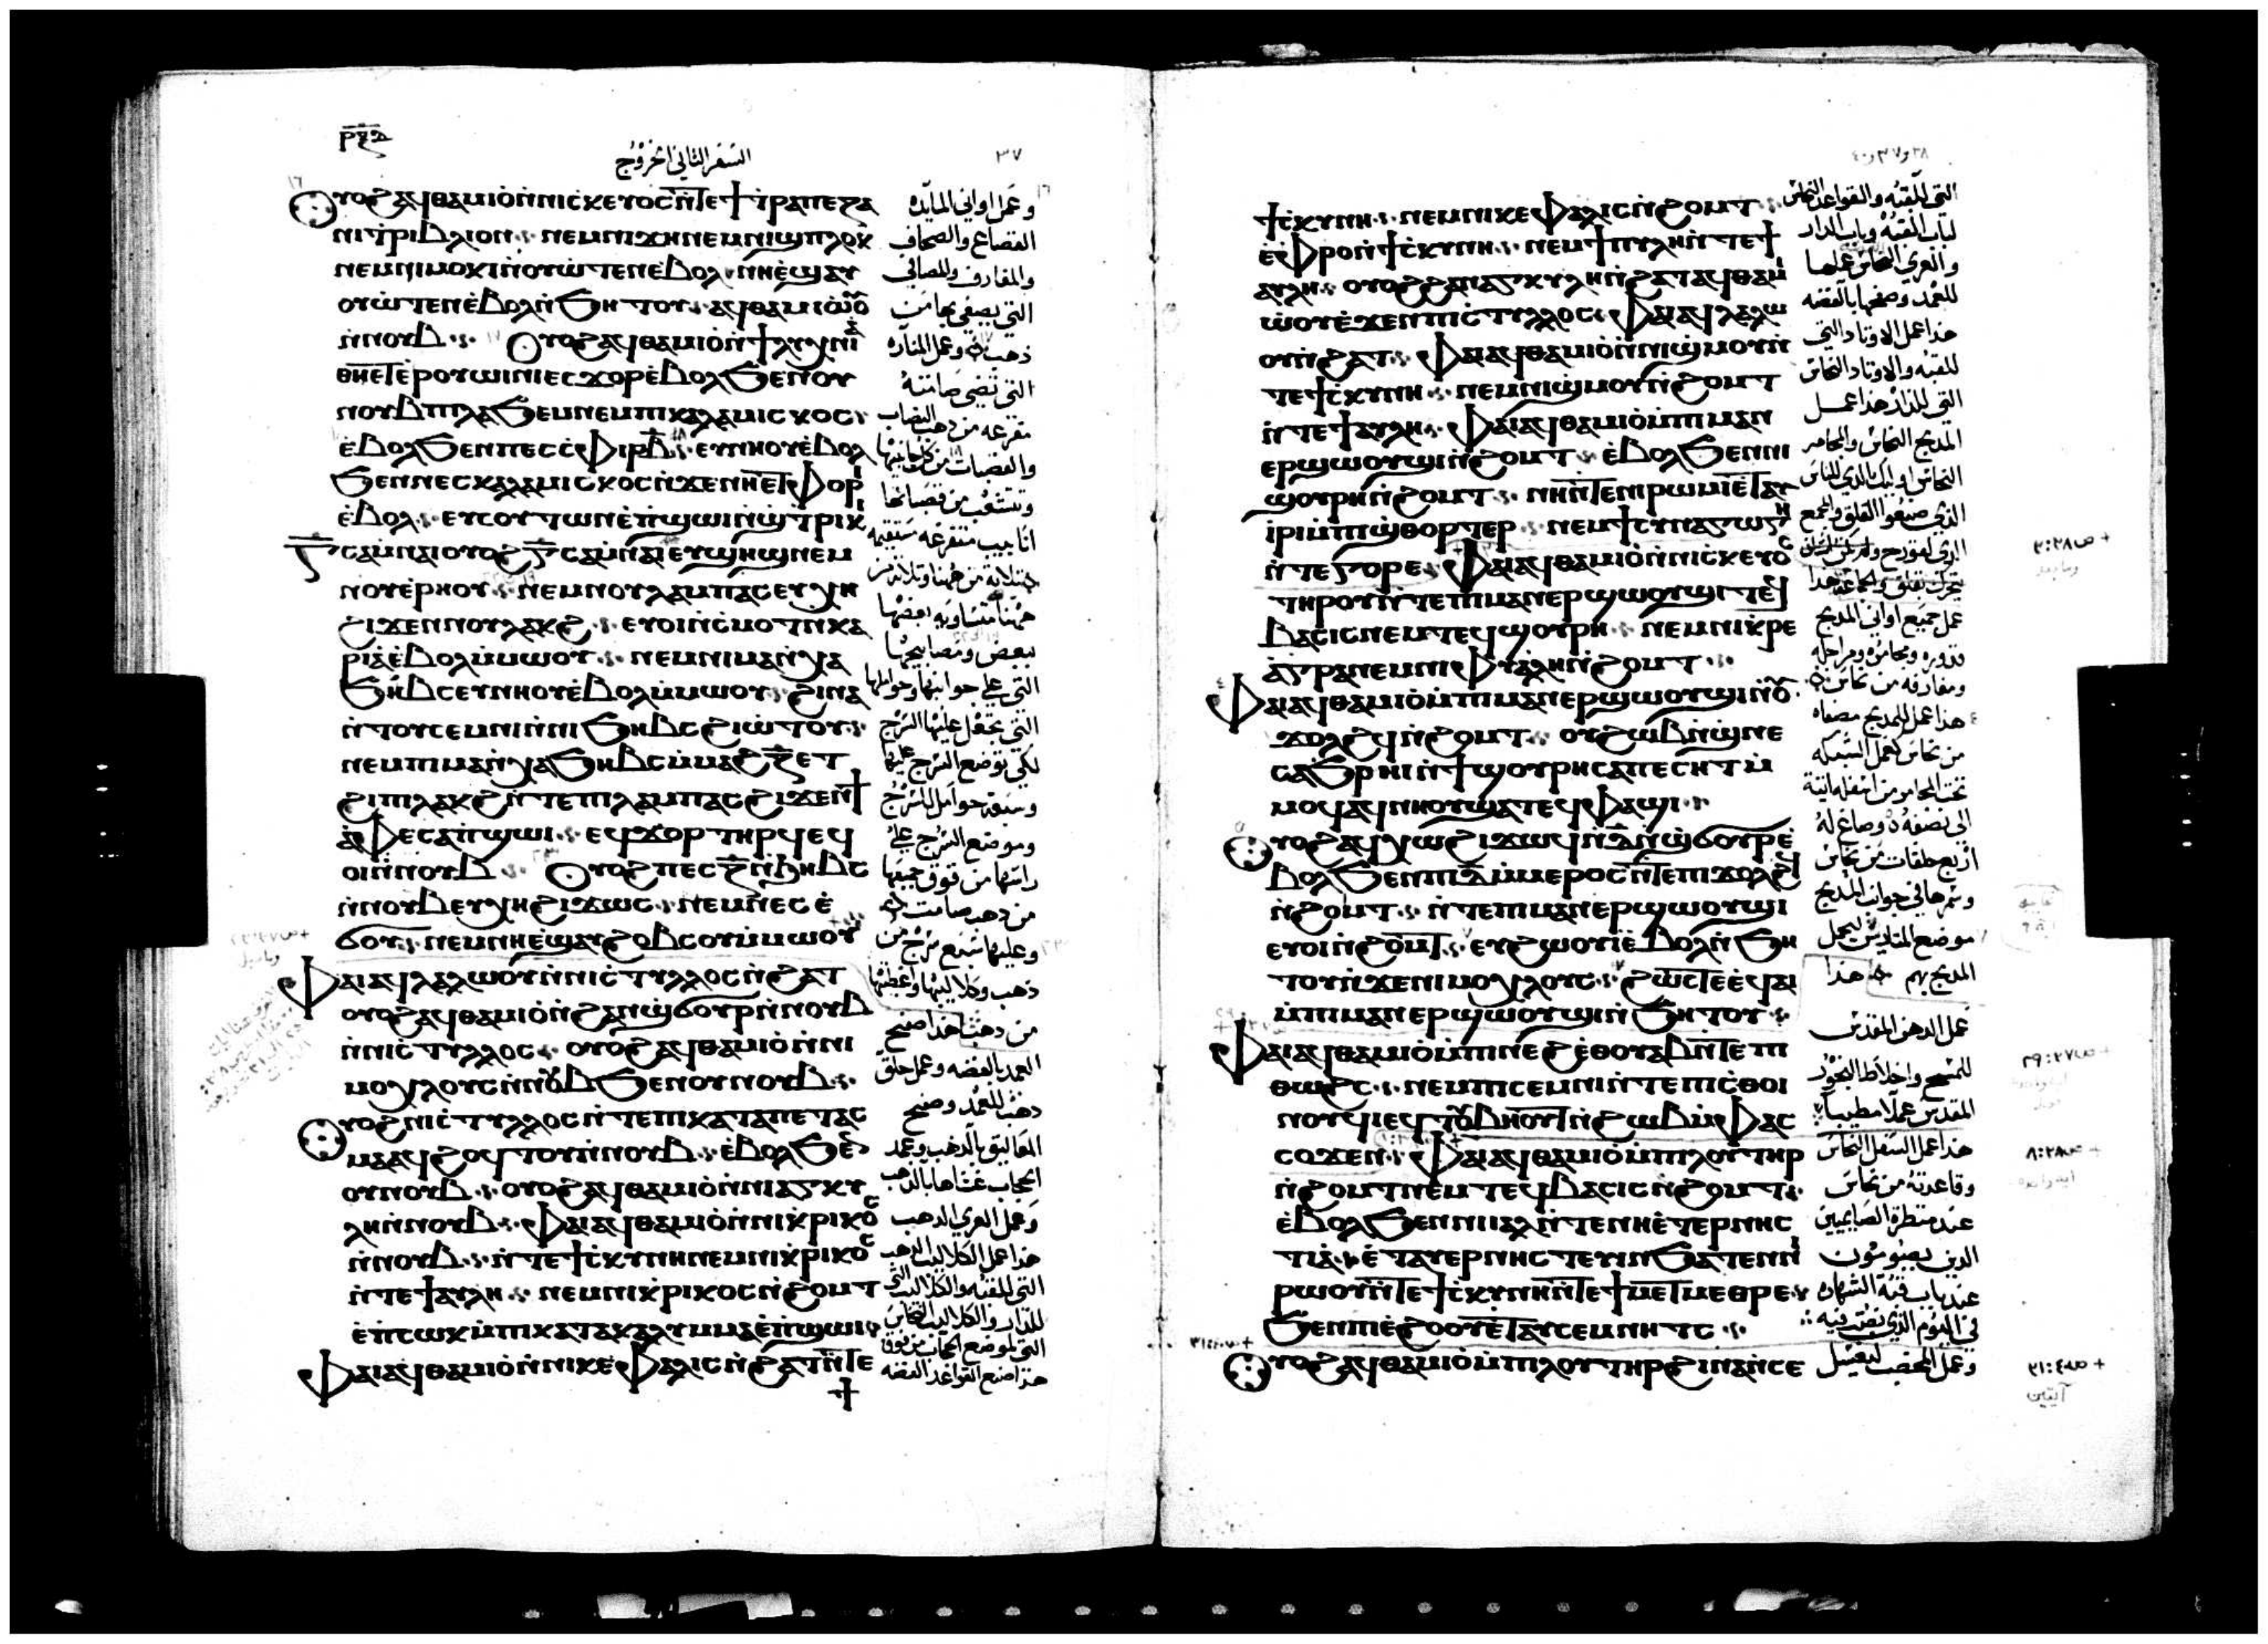 ⲣⲝⲑ
السفر الثاني الخروج
٣٧
ⲟⲩⲟϩ ⲁϥⲑⲁⲙⲓⲟ ⲛⲛⲓⲥⲕⲉⲩⲟⲥ ⲛⲧⲉ ϯⲧⲣⲁⲡⲉⲍⲁ
ⲛⲓⲧⲣⲓⲃⲗⲓⲟⲛ ⲛⲉⲙ ⲛⲓϫⲏ ⲛⲉⲙ
ⲛⲉⲙ ⲛⲓⲙⲟⲕⲓ ⲛⲟⲩⲱⲧⲉⲛ ⲉⲃⲟⲗ ⲛⲏ ⲉϣⲁⲩ
ⲟⲩⲱⲧⲉⲛ ⲉⲃⲟⲗ ⲛϧⲏⲧⲟⲩ ⲁϥⲑⲁⲙⲓⲱⲟⲩ
ⲛⲛⲟⲩⲃ ⲟⲩⲟϩ ⲁϥⲑⲁⲙⲓⲟ ⲛϯⲗⲩⲭⲛⲓⲁ
ⲑⲏⲉⲧⲉⲣⲟⲩⲱⲓⲛⲓ ⲉⲥϫⲟⲣ ⲉⲃⲟⲗ ϧⲉⲛ ⲟⲩ
ⲛⲟⲩⲃ ⲡⲓⲗⲁϧⲉⲙ ⲛⲉⲙ ⲡⲓⲕⲁⲗⲁⲙⲓⲥⲕⲟⲥ
ⲉⲃⲟⲗ ϧⲉⲛ ⲡⲉⲥⲥⲫⲓⲣ ⲃ ⲉⲩⲛⲏⲟⲩ ⲉⲃⲟⲗ
ϧⲉⲛ ⲛⲉⲥⲕⲁⲗⲁⲙⲓⲥⲕⲟⲥ ⲛϫⲉ ⲛⲏ ⲉⲧⲫⲟⲣⲓ
ⲉⲃⲟⲗ ⲉⲩⲥⲟⲩⲧⲱⲛ ⲉⲡϣⲱⲓ ⲛϣⲧⲣⲓⲕ
ⲅ ⲥⲁⲙⲛⲁⲓ ⲟⲩⲟϩ ⲅ ⲥⲁⲙⲛⲁⲓ ⲉⲩϣⲏϣ ⲛⲉⲙ
ⲛⲟⲩⲉⲣⲏⲟⲩ ⲛⲉⲙ ⲛⲟⲩⲗⲁⲙⲡⲁⲥ ⲉⲩⲭⲏ
ϩⲓϫⲉⲛ ⲛⲟⲩⲗⲁⲕϩ ⲉⲩⲟⲓ ⲛⲥⲙⲟⲧ ⲛⲕⲁ
ⲣⲓⲁ ⲉⲃⲟⲗ ⲙⲙⲱⲟⲩ ⲛⲉⲙ ⲛⲓⲙⲁⲛⲭⲁ
ϧⲏⲃⲥ ⲉⲩⲛⲏⲟⲩ ⲉⲃⲟⲗ ⲙⲙⲱⲟⲩ ϩⲓⲛⲁ
ⲛⲧⲟⲩⲥⲉⲙⲛⲓ ⲛⲛⲓϧⲏⲃⲥ ϩⲓⲱⲧⲟⲩ
ⲛⲉⲙ ⲡⲓⲙⲁⲛⲭⲁϧⲏⲃⲥ ⲙⲙⲁϩⲍ ⲉⲧ
ϩⲓ ⲡⲓⲗⲁⲕϩ ⲛⲧⲉ ⲡⲓⲗⲁⲙⲡⲁⲥ ϩⲓϫⲉⲛ ϯ
ⲁⲫⲉ ⲥⲁⲡϣⲱⲓ ⲉϥϫⲟⲣ ⲧⲏⲣϥ ⲉϥ
ⲟⲓ ⲛⲛⲟⲩⲃ ⲟⲩⲟϩ ⲡⲉⲥⲍ ⲛϧⲏⲃⲥ
ⲛⲛⲟⲩⲃ ⲉⲩⲭⲏ ϩⲓϫⲱⲥ ⲛⲉⲙ ⲛⲉⲥϭ
ϭⲟⲩ ⲛⲉⲙ ⲛⲏ ⲉϣⲁⲩϩⲟⲃⲥⲟⲩ ⲙⲙⲱⲟⲩ
ⲫⲁⲓ ⲁϥⲗⲁⲗⲱⲟⲩ ⲛⲛⲓⲥⲧⲩⲗⲗⲟⲥ ⲛϩⲁⲧ
ⲟⲩⲟϩ ⲁϥⲑⲁⲙⲓⲟ ⲛϩⲁⲛϣϭⲟⲩⲣ ⲛⲛⲟⲩⲃ
ⲛⲛⲓⲥⲧⲩⲗⲗⲟⲥ ⲟⲩⲟϩ ⲁϥⲑⲁⲙⲓⲟ ⲛⲛⲓ
ⲙⲟⲭⲗⲟⲩⲥ ⲛⲛⲟⲩⲃ ϧⲉⲛ ⲟⲩⲛⲟⲩⲃ
ⲟⲩⲟϩ ⲛⲓⲥⲧⲩⲗⲗⲟⲥ ⲛⲧⲉ ⲡⲓⲕⲁⲧⲁⲡⲉⲧⲁⲥ
ⲙⲁ ⲁϥϩⲟϥⲧⲟⲩ ⲛⲛⲟⲩⲃ ⲉⲃⲟⲗ ϧⲉⲛ
ⲟⲩⲛⲟⲩⲃ ⲟⲩⲟϩ ⲁϥⲑⲁⲙⲓⲟ ⲛⲛⲓⲁⲅⲕⲩ
ⲗⲏ ⲛⲛⲟⲩⲃ ⲫⲁⲓ ⲁϥⲑⲁⲙⲓⲟ ⲛⲛⲓⲕⲣⲓⲕⲟⲥ
ⲛⲛⲟⲩⲃ ⲛⲧⲉ ϯⲥⲕⲩⲛⲏ ⲛⲉⲙ ⲛⲓⲕⲣⲓⲕⲟⲥ
ⲛⲧⲉ ϯⲁⲩⲗⲏ ⲛⲉⲙ ⲛⲓⲕⲣⲓⲕⲟⲥ ⲛϩⲟⲙⲧ
ⲉⲡⲥⲱⲕ ⲙⲡⲓⲕⲁⲧⲁⲕⲁⲗⲩⲙⲙⲁ ⲉⲡϣⲱⲓ
ⲫⲁⲓ ⲁϥⲑⲁⲙⲓⲟ ⲛⲛⲓⲕⲉⲫⲁⲗⲓⲥ ⲛϩⲁⲧ ⲛⲧⲉ
ϯ
وعمل اواني المايده
القصاع والصحاف
والمغارف والمصافي
التي يصفي بها من
ذهب وعمل المناره
التي تضي صامته
متفرعه من ذهب القضاب
والقصبات من كل جانبيها
وتتشعب من قصباتها
انابيب متفرعه مستقيمه
ثلاثه من هنا وثلاثه من
هنا متساويه بعضها
ببعض ومصابيحها
التي علي جوانبها وحواملها
التي تجعل عليها السرج
لكي توضع السرج عليها
وسبعه حوامل السرج
وموضع السرج علي
راسها من فوق جميعها
من ذهب صامت
وعليها سبع سرج من
ذهب وكلاليبها واغطيتها
من ذهب هذا صفح
العمد بالفضه وعمل حلق
ذهب للعمد وصفح
المعاليق بالذهب وعمد
الحجاب غشاها بالذهب
وعمل العري الذهب
هذا عمل الكلاليب الذهب
التي للقبه والكلاليب التي
للدار والكلاليب النحاس
التي لموضع الحجاب من فوق
هذا صنع القواعد الفضه
٣٨ و٣٧ و٤٠
ϯⲥⲕⲩⲛⲏ ⲛⲉⲙ ⲛⲓⲕⲉⲫⲁⲗⲓⲥ ⲛϩⲟⲙⲧ
ⲉⲫⲣⲟ ⲛϯⲥⲕⲩⲛⲏ ⲛⲉⲙ ϯⲡⲩⲗⲏ ⲛⲧⲉ ϯ
ⲁⲩⲗⲏ ⲟⲩⲟϩ ϩⲁⲛⲁⲅⲕⲩⲗⲏ ⲛϩⲁⲧ ⲁϥⲑⲁⲙⲓ
ⲱⲟⲩ ⲉϫⲉⲛ ⲡⲓⲥⲧⲩⲗⲗⲟⲥ ⲫⲁⲓ ⲁϥⲗⲁⲗⲱ
ⲟⲩ ⲛϩⲁⲧ ⲫⲁⲓ ⲁϥⲑⲁⲙⲓⲟ ⲛⲛⲓϣⲙⲟⲩ ⲛ
ⲧⲉ ϯⲥⲕⲩⲛⲏ ⲛⲉⲙ ⲛⲓϣⲙⲟⲩ ⲛϩⲟⲙⲧ
ⲛⲧⲉ ϯⲁⲩⲗⲏ ⲫⲁⲓ ⲁϥⲑⲁⲙⲓⲟ ⲙⲡⲓⲙⲁⲛ
ⲉⲣϣⲱⲟⲩϣⲓ ⲛϩⲟⲙⲧ ⲉⲃⲟⲗ ϧⲉⲛ ⲛⲓ
ϣⲟⲩⲣⲏ ⲛϩⲟⲙⲧ ⲛⲏ ⲛⲧⲉ ⲛⲓⲣⲱⲙⲓ ⲉⲧⲁⲩ
ⲓⲣⲓ ⲙⲡⲓϣⲑⲟⲣⲧⲉⲣ ⲛⲉⲙ ϯⲥⲩⲛⲁⲅⲱⲅⲏ
ⲛⲧⲉ ⲅⲟⲣⲉ ⲫⲁⲓ ⲁϥⲑⲁⲙⲓⲟ ⲛⲛⲓⲥⲕⲉⲩⲟⲥ
ⲧⲏⲣⲟⲩ ⲛⲧⲉ ⲡⲓⲙⲁⲛⲉⲣϣⲱⲟⲩϣⲓ ⲧⲉϥ
ⲃⲁⲥⲓⲥ ⲛⲉⲙ ⲧⲉϥϣⲟⲩⲣⲏ ⲛⲉⲙ ⲛⲓⲕⲣⲉ
ⲁⲅⲣⲁ ⲛⲉⲙ ⲛⲓⲫⲩⲁⲗⲏ ⲛϩⲟⲙⲧ
ⲫⲁⲓ ⲁϥⲑⲁⲙⲓⲟ ⲙⲡⲓⲙⲁⲛⲉⲣϣⲱⲟⲩϣⲓ ⲛⲟⲩ
ϫⲟⲗϩϥ ⲛϩⲟⲙⲧ ⲟⲩϩⲱⲃ ⲛϣⲛⲉ
ⲥⲁϧⲣⲏⲓ ⲛϯϣⲟⲩⲣⲏ ⲥⲁⲡⲉⲥⲏⲧ ⲙ
ⲙⲟϥ ⲁϥⲛⲏⲟⲩ ϣⲁ ⲧⲉϥⲫⲁϣⲓ
ⲟⲩⲟϩ ⲁϥⲭⲱ ϩⲓϫⲱϥ ⲛⲇ ⲛϣϭⲟⲩⲣ ⲉ
ⲃⲟⲗ ϧⲉⲛ ⲡⲓⲇ ⲙⲙⲉⲣⲟⲥ ⲛⲧⲉ ⲡⲓϫⲟⲗϩϥ
ⲛϩⲟⲙⲧ ⲛⲧⲉ ⲡⲓⲙⲁⲛⲉⲣϣⲱⲟⲩϣⲓ
ⲉⲩⲟⲓ ⲛϩⲟⲙⲧ ⲉⲩϩⲱⲟⲩⲓ ⲉⲃⲟⲗ ⲛϧⲏ
ⲧⲟⲩ ⲛϫⲉ ⲛⲓⲙⲟⲭⲗⲟⲩⲥ ϩⲱⲥⲧⲉ ⲉϥⲁⲓ
ⲙⲡⲓⲙⲁⲛⲉⲣϣⲱⲟⲩϣⲓ ⲛϧⲏⲧⲟⲩ
ⲫⲁⲓ ⲁϥⲑⲁⲙⲓⲟ ⲙⲡⲓⲛⲉϩ ⲉⲑⲟⲩⲁⲃ ⲛⲧⲉ ⲡ
ⲑⲱϩⲥ ⲛⲉⲙ ⲡⲥⲉⲙⲛⲓ ⲛⲧⲉ ⲡⲓⲥⲑⲟⲓ
ⲛⲟⲩϥⲓ ⲉϥⲧⲟⲩⲃⲏⲟⲩⲧ ⲛϩⲱⲃ ⲙⲫⲁⲥ
ⲥⲟϫⲉⲛ ⲫⲁⲓ ⲁϥⲑⲁⲙⲓⲟ ⲙⲡⲓⲗⲟⲩⲧⲏⲣ
ⲛϩⲟⲙⲧ ⲛⲉⲙ ⲧⲉϥⲃⲁⲥⲓⲥ ⲛϩⲟⲙⲧ
ⲉⲃⲟⲗ ϧⲉⲛ ⲛⲓⲓⲁⲗ ⲛⲧⲉ ⲛⲏ ⲉⲧⲉⲣⲛⲏⲥ
ⲧⲓⲁ ⲉⲧⲁⲩⲉⲣⲛⲏⲥⲧⲉⲩⲓⲛ ϧⲁⲧⲉⲛ ⲛⲓ
ⲣⲱⲟⲩ ⲛⲧⲉ ϯⲥⲕⲩⲛⲏ ⲛⲧⲉ ϯⲙⲉⲧⲙⲉⲑⲣⲉ
ϧⲉⲛ ⲡⲓⲉϩⲟⲟⲩ ⲉⲧⲁⲩⲥⲉⲙⲛⲏⲧⲥ
ⲟⲩⲟϩ ⲁϥⲑⲁⲙⲓⲟ ⲙⲡⲓⲗⲟⲩⲧⲏⲣ ϩⲓⲛⲁ ⲛⲥⲉ
التي للقبه والقواعد النحاس
لباب القبه وباب الدار
والعري الفضه عملها
للعمد وصفحها بالفضه
هذا عمل الاوتاد التي
للقبه والاوتاد النحاس
التي للدار هذا عمل
المذبح النحاس والمجامر
النحاس اوليك الذي للناس
الذي صنعوا القلق والجمع
عمل جميع اواني المذبح
قدوره ومجامره ومراحله
ومغارفه من نحاس
هذا عمل للمذبح مصفاه
من نحاس كعمل الشبكه
تحت المجامر من اسفله اتيه
الي نصفه وصاغ له
اربع حلقات من نحاس
وسمرها في جوانب المذبح
موضع المتاريس ليحمل
المذبح بهم هذا
عمل الدهن المقدس
للمسح واخلاط البخور
المقدس عملا مطيبا
هذا عمل السطل النحاس
وقاعدته من نحاس
عند منظرة الصايمين
الذين يصومون
عند باب قبة الشهاده
في اليوم الذي نصبت فيه
وعمل المخضب ليغسل
+ ص٣٨:٢
+ ص٢٧:٢٩
+ ص٣٨:٨
+ ص٤٠:٣١